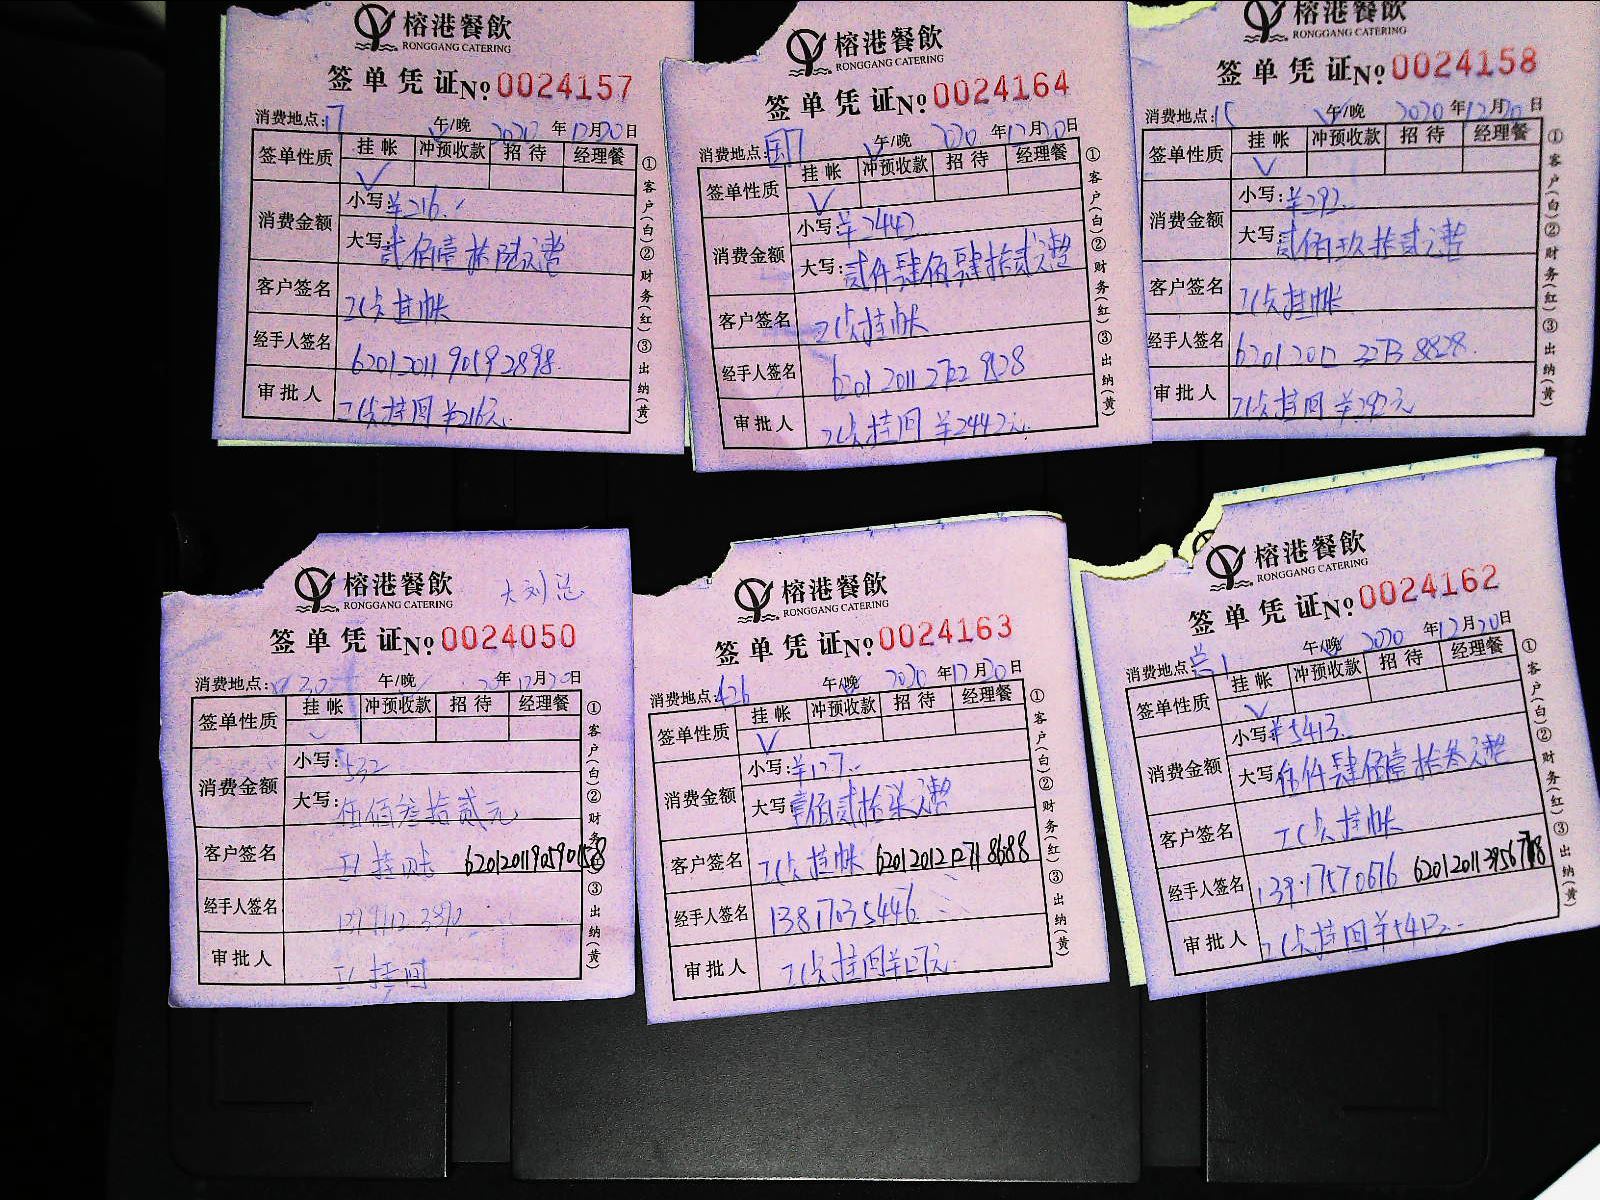 榕港餐飲
RONGGANG CATERING
签单凭证№ 0024157
消费地点:17 午/晚 2020年12月20日
签单性质 挂帐 冲预收款 招待 经理餐
消费金额 小写:¥216.-
大写:贰佰壹拾陆元整
客户签名 工点挂帐
经手人签名 6201201190592898.
审批人 工点挂间 ¥216元.
①客户(白)②财务(红)③出纳(黄)
榕港餐飲
RONGGANG CATERING
签单凭证№ 0024164
消费地点: 午/晚 2020年12月20日
签单性质 挂帐 冲预收款 招待 经理餐
消费金额 小写:¥2442.
大写:贰仟肆佰肆拾贰元整
客户签名 工点挂帐
经手人签名
审批人 工点挂间 ¥2442元.
①客户(白)②财务(红)③出纳(黄)
榕港餐飲
RONGGANG CATERING
签单凭证№ 0024158
消费地点:15 午/晚 2020年12月20日
签单性质 挂帐 冲预收款 招待 经理餐
消费金额 小写:¥292.
大写:贰佰玖拾贰元整
客户签名 工点挂帐
经手人签名
审批人 工点挂间 ¥292元
①客户(白)②财务(红)③出纳(黄)
榕港餐飲 大刘总
RONGGANG CATERING
签单凭证№ 0024050
消费地点: 午/晚 年12月20日
签单性质 挂帐 冲预收款 招待 经理餐
消费金额 小写:532
大写:伍佰叁拾贰元
客户签名 挂账
经手人签名
审批人 挂间
①客户(白)②财务(红)③出纳(黄)
榕港餐飲
RONGGANG CATERING
签单凭证№ 0024163
消费地点:426 午/晚 2020年12月20日
签单性质 挂帐 冲预收款 招待 经理餐
消费金额 小写:¥127.-
大写:壹佰贰拾柒元整
客户签名 工点挂帐 6201201212718688
经手人签名 13817035446
审批人 工点挂间¥127元.
①客户(白)②财务(红)③出纳(黄)
榕港餐飲
RONGGANG CATERING
签单凭证№ 0024162
消费地点: 午/晚 2020年12月20日
签单性质 挂帐 冲预收款 招待 经理餐
消费金额 小写:¥5413.
大写:伍仟肆佰壹拾叁元整
客户签名 工点挂帐
经手人签名 13917570676
审批人 工点挂间¥5413.-
①客户(白)②财务(红)③出纳(黄)